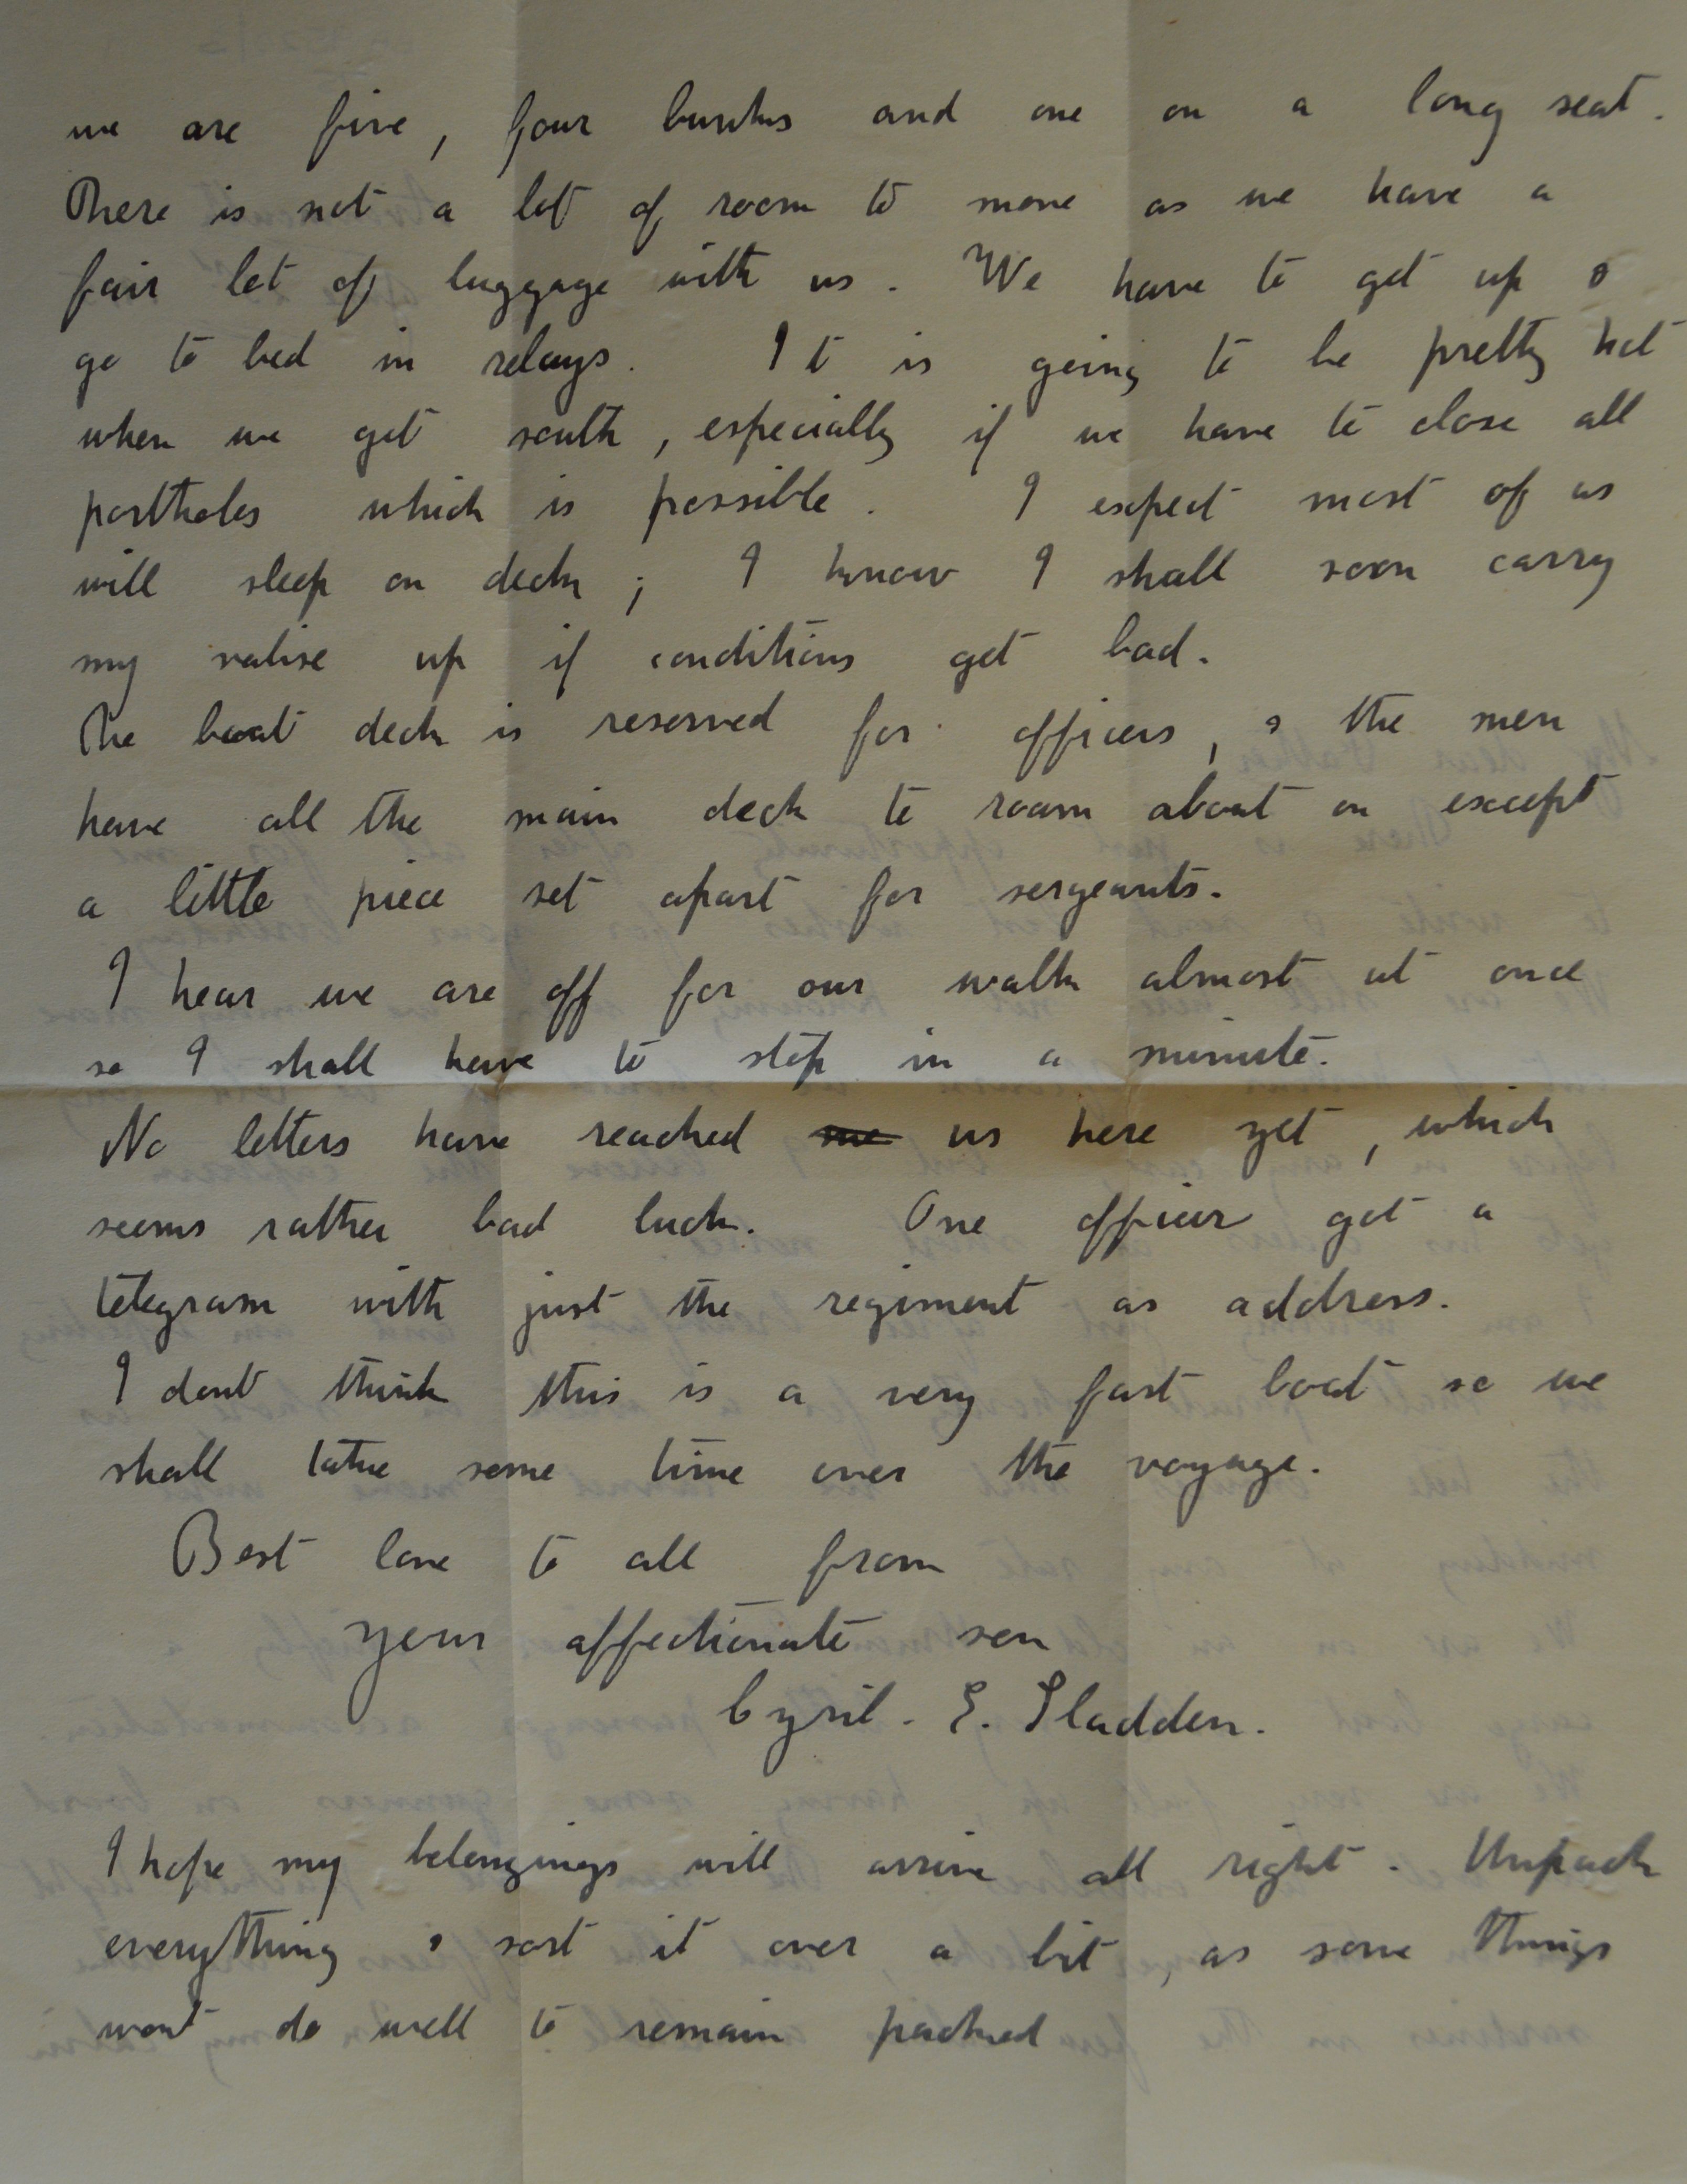 we are five, four bunks and one on a long seat.
There is not a lot of room to move as we have a
fair lot of luggage with us. We have to get up &
go to bed in relays. It is going to be pretty hot
when we get south, especially if we have to close all
portholes which is possible. I expect most of us
will sleep on deck; I know I shall soon carry
my valise up if conditions get bad.
The boat deck is reserved for officers, & the men
have all the main deck to roam about on except
a little piece set apart for sergeants.
I hear we are off for our walk almost at once
so I shall have to stop in a minute.
No letters have reached me us here yet, which
seems rather bad luck. One officer got a
telegram with just the regiment as address.
I dont think this is a very fast boat so we
shall take some time over the voyage.
Best love to all from
your affectionate son
Cyril. E. Sladden.
I hope my belongings will arrive all right. Unpack
everything & sort it over a bit, as some things
wont do well to remain packed